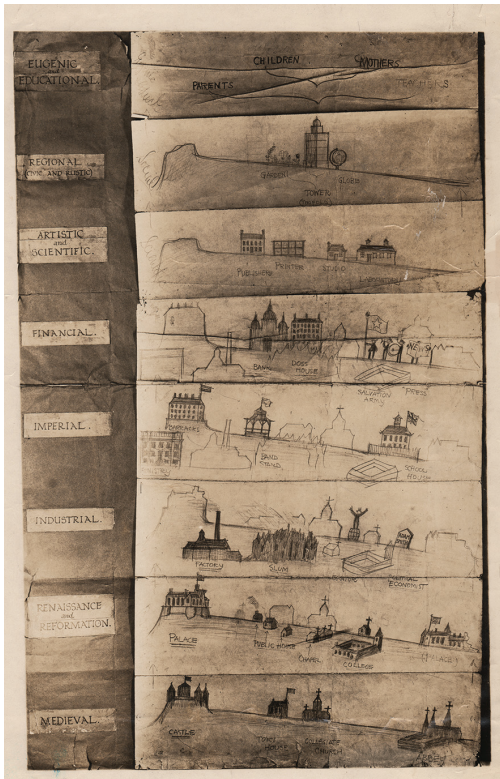 EUGENIC
and
EDUCATIONAL.
CHILDREN
MOTHERS
PARENTS
TEACHERS
REGIONAL
(CIVIC AND RUSTIC)
GARDEN
TOWER
GLOBE
ARTISTIC
and
SCIENTIFIC.
PUBLISHERS
PRINTER
STUDIO
LABORATORY
FINANCIAL.
BANK
DOSS
HOUSE
NEWS
SALVATION
ARMY
PRESS
IMPERIAL.
BARRACKS
BAND
STAND.
SCHOOL
INDUSTRIAL.
FACTORY
SLUM
ECONOMIST
RENAISSANCE
and
REFORMATION.
PALACE
PUBLIC HOUSE
CHAPEL
COLLEGE
PALACE
MEDIEVAL.
CASTLE
TOWN
HOUSE
COLLEGIATE
CHURCH
ABBEY